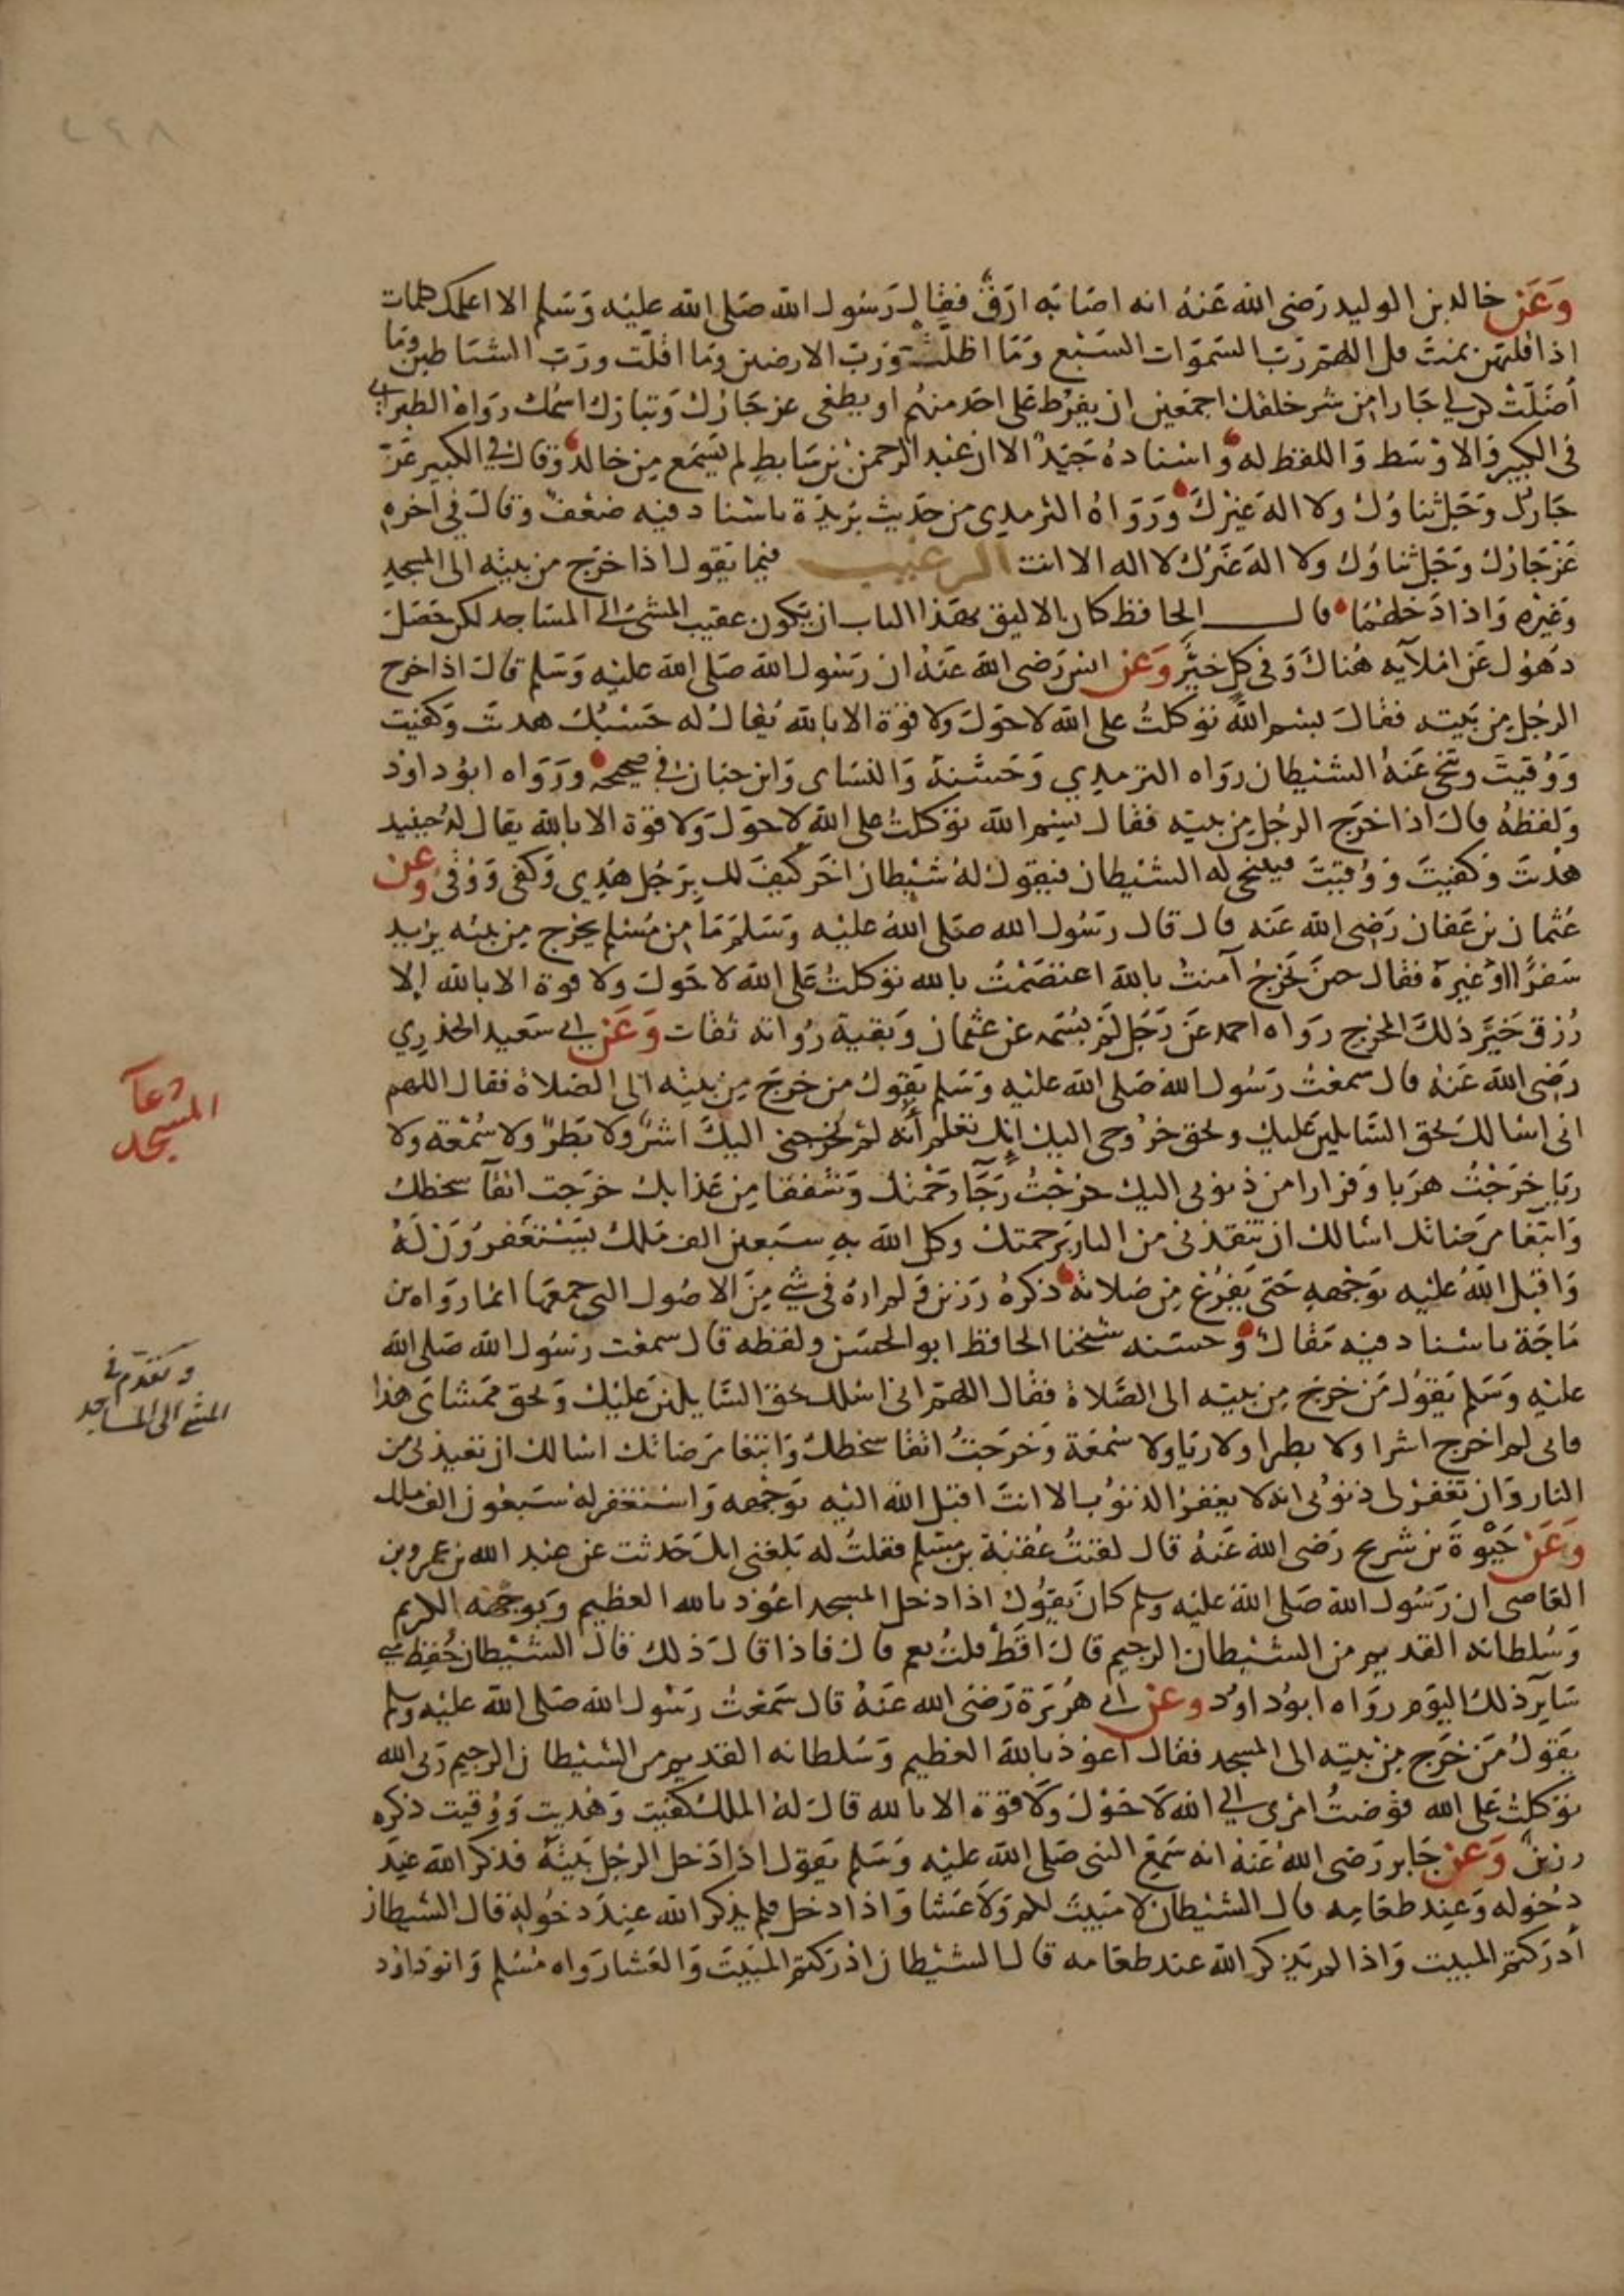 ٢٩٨
وَعَن خالد بن الوليد رَضى الله عَنهُ انه اصَابَه ارَقٌ فقال رَسُول الله صَلى الله عليْه وَسَلم الا اعلمك كلمات
اذا قلتهن نمتَ قل اللهم رَبّ السَموَات السَبْع وَمَا اظلتْ وَرَبّ الارضين وَما اقلت ورَبّ الشيَاطين وَمَا
أضَلَتْ كن لي جَارا من شر خلقك اجمَعين ان يفرُط عَلى احَد منهُم او يطغى عز جَارُك وَتبارَك اسمُك رَوَاهُ الطبراني
في الكبير وَالاوْسَط وَاللفظ له وَاسْنادهُ جَيّد الا ان عَبد الرحمن بن سَابط لم يَسْمَع مِن خالد وَقال في الكبير عَزّ
جَارُك وَجَل ثناوُك ولا اله غيْرك وَرَوَاهُ الترمدي من حَديث برَيدَة باسْناد فيه ضَعْفٌ وقالَ في اخره
عَزّ جَارُك وَجَل ثناؤك ولا الهَ غَيْرُك لا اله الا انت الترغيب فيما يَقول اذا خرَج من بيْته الى المسجد
وَغيْره وَاذا دَخلهُمَا قال الحافظ كان الاليق بهَذا الباب ان يَكون عقيب المشى الى المسَاجد لكن حَصَل
دهُول عَن امْلآيه هُناك وَفي كل خيْرٌ وَعَن انس رَضى الله عَنهُ ان رَسُول الله صَلى الله عليْه وَسَلم قال اذا خرج
الرجُل مِن بَيته فقالَ بسْم الله توكلتُ على الله لاحَوْلَ ولا قوّة الا بالله يُقالُ له حَسْبُك هديتَ وَكفيت
وَوُقيتَ وتنحى عَنهُ الشيْطان رواه الترمدي وَحَسّنهُ وَالنسَاى وَابن حبان في صحيحه ورَوَاه ابوُ داوُد
وَلفظهُ قالَ اذا خرَج الرجُل مِن بيته فقال بسْم الله توَكلتُ على الله لاحَوْلَ وَلا قوّة الا بالله يقال لهُ حينيد
هُدْيتَ وَكفيتَ وَوُقيتَ فيتنحى له الشيْطان فيَقولُ لهُ شيْطان اخر كيْفَ لك برَجُل هُدِي وَكفى وَوُقى وعن
عُثمان بن عَفان رَضى الله عَنه قال قال رَسُول الله صَلى اللهُ عليْه وَسَلم مَا من مُسْلم يخرج مِن بيْته يريد
سَفرًا اوْ غيرَهُ فقال حين يَخرُج آمنتُ بالله اعتصَمْتُ بالله توكلتُ عَلى الله لاحَوْلَ ولا قوة الا بالله إلا
رُزق خَيْرَ ذلكَ المخرج رَواه احمد عَن رَجُل لم يسَمه عن عثمان وَبقية رُواته ثقات وَعَن ابي سَعيد الخدري
رَضى الله عَنهُ قال سَمعتُ رَسُول الله صَلى الله عليْه وَسَلم يَقول من خرجَ مِن بيْته الى الصَلاة فقال اللهم
انى اسْالك بحق السَّايلين عَليك وبحق خرُوجي اليك إنك تعلم أنه لم يُخرجني اليكَ اشرٌ ولا بَطرٌ ولا سُمْعَة ولا
ريَا خرَجْتُ هرَبا وَفرارا من ذنوبى اليك خرَجْتُ رَجَآ رَحْمتك وَشفقا مِن عَذابك خرَجت اتقآ سخطك
وَابتغا مرَضاتك اسْالك ان تنقذنى من النار برَحمتك وكل الله به سَبعين الف مَلك يَسْتغفرُوْن لهُ
وَاقبَل اللهُ عليْه بوَجْههِ حَتى يَفرُغ مِن صَلاتهِ ذكرهُ رَزين وَلم ارهُ في شي مِنَ الاصُول التى جمعَهَا انما رَوَاه ابن
مَاجَة باسْناد فيه مَقال وَحسَنه شيْخنا الحافظ ابو الحسَن ولفظه قال سمعت رَسُول الله صَلى الله
عليْهِ وَسَلم يَقوُل مَن خرَج مِن بيته الى الصَّلاة فقال اللهم اني اسْلك بحق السَّايلين عَليْك وَبحق ممْشاى هذا
فانى لم اخرج اشرا ولا بطرا ولا ريَاولا سُمعَة وَخرَجتُ اتقا سخطك وَابتغا مَرضاتك اسْالك ان تعيذني من
النار وَان تغفرلى ذنوُبى انه لا يغفرُ الذنوُب الا انتَ اقبَل الله اليْه بوَجْهه وَاسْتغفر لهُ سَبعُون الف ملك
وَعَن حَيْوَةَ بن شريح رَضى الله عَنهُ قال لقيتُ عُقبَة بن مسْلم فقلتُ له بَلغنى انك حَدثت عن عبد الله بن عمرو بن
العَاصى ان رَسُول الله صَلى الله عليْه وسلم كان يَقوُل اذا دخل المسجد اعُوذ بالله العظيم وَبوجْهه الكريم
وَسُلطانه القديم من الشيْطان الرجيم قالَ اقَطْ قلتُ نعم قال فاذا قالَ ذلك قال الشيْطان حُفِظ مني
سَآيرَ ذلك اليَوم روَاه ابوُ داوُد وعن ابي هُرَيرَة رَضى الله عَنهُ قال سَمعْتُ رَسُول الله صَلى الله عليْه وسلم
يَقولُ مَن خرَج مِن بيْته الى المسجد فقال أعُوذ بالله العَظيم وَسُلطانه القديم من الشيْطان الرجيم رَبى الله
توَكلتُ عَلى الله فوّضتُ امْرى إلى الله لا حَوْلَ وَلا قوّة الا بالله قالَ لهُ الملك كفيْت وَهُديت وَوُقيت ذكره
رزينٌ وَعن جَابر رَضى الله عَنهُ انه سَمِعَ النبى صَلى الله عليْه وَسَلم يَقوُل اذا دَخل الرجُل بَيْتهُ فذكر اللهَ عِندَ
دخُوله وَعِند طعَامِه قال الشيْطان لا مَبيتَ لكم وَلا عَشا وَاذا دخل فلم يذكر الله عِندَ دخُوله قال الشيطان
أدْرَكتم المبيت وَاذا لم يَذكر الله عند طعَامه قال الشيْطان ادرَكتم المَبيتَ وَالعَشا رَواه مُسْلم وَابوداوُد
دعآ
المسجد
وتقدم في
المشي الى المساجد